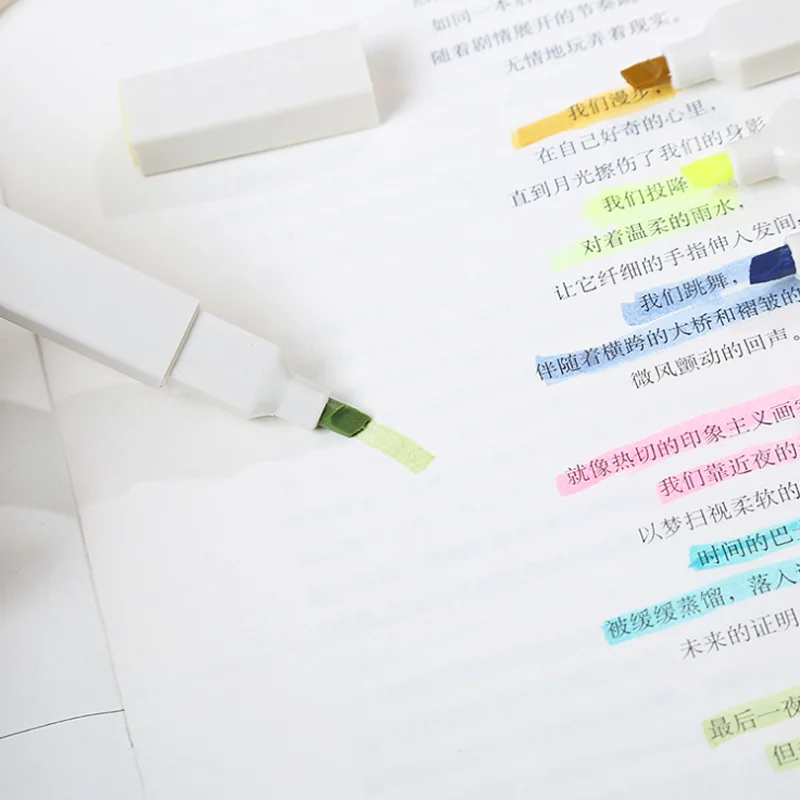 如同一本
随着剧情展开的节奏
无情地玩弄着现实。
我们漫步，
在自己好奇的心里，
直到月光擦伤了我们的身影
我们投降
对着温柔的雨水，
让它纤细的手指伸入发间，
我们跳舞，
伴随着横跨的大桥和褶皱的
微风颤动的回声。
就像热切的印象主义画
我们靠近夜的
以梦扫视柔软的
时间的巴
被缓缓蒸馏，落入
未来的证明
最后一夜
但